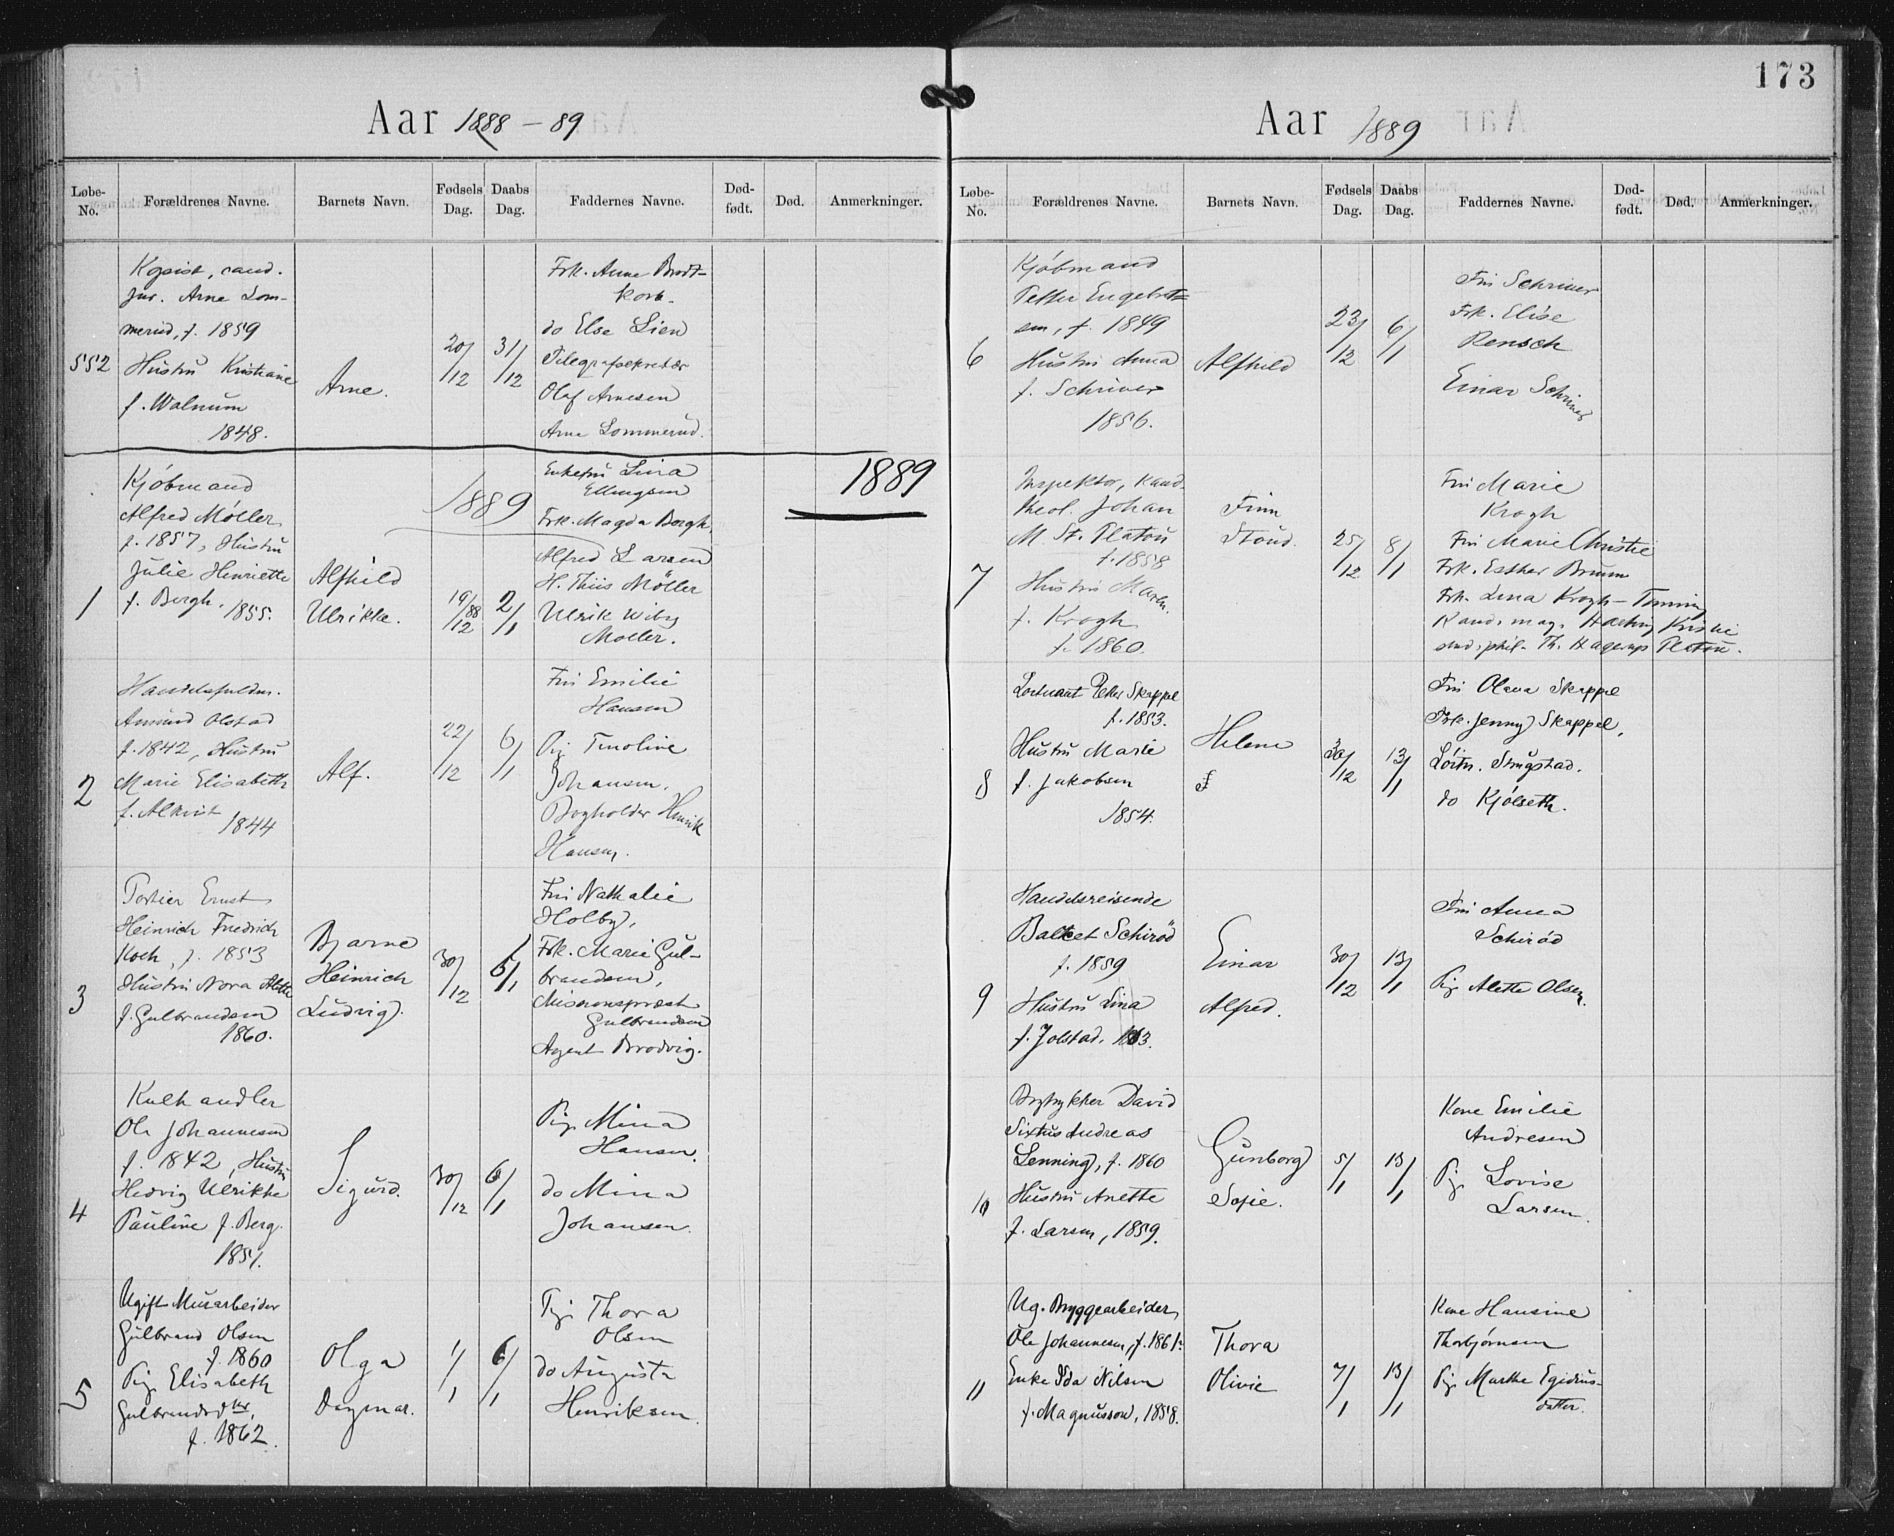 173
Aar 1888 - 89
Løbe-No. Forældrenes Navne. Barnets Navn. Fødsels Dag. Daabs Dag. Faddernes Navne. Død-født. Død. Anmerkninger.
552
Kopist, cand.
jur. Arne Lom-
merud, f. 1859
Hustru Kristiane
f. Walnum
1848.
Arne.
20/12
31/12
Frk. Anne Brodt-
korb.
do Else Lien
Telegrafsekretær
Olaf Arnesen
Arne Lommerud.
1889
1
Kjøbmand
Alfred Møller
f. 1857, Hustru
Julie Henriette
f. Bergh, 1855.
Alfhild
Ulrikke.
1889
19/12 88
2/1
Enkefru Lina
Ellingsen
Frk. Magda Bergh
Alfred Larsen
H. Thiis Møller
Ulrik Wiby
Møller.
2
Amund Olstad
f. 1842, Hustru
Marie Elisabeth
1844
Alf.
22/12
6/1
Fru Emilie
Hansen
Pig. Tinoline
Johansen.
Bogholder Henrik
Hansen.
3
Portier Ernst
Heinrich Friedrich
Koch, f. 1853
Hustru Nora Alette
f. Gulbrandsen
1860.
Bjarne
Heinrich
Ludvig.
30/12
6/1
Fru Nathalie
Holby,
Frk. Marie Gul-
brandsen,
Missionsprest
Gulbrandsen
Agent Brodvig.
4
Kulhandler
Ole Johannesen
f. 1842, Hustru
Hedvig Ulrikke
Pauline f. Berg.
1851.
Sigurd.
30/12
6/1
Pig. Mina
Hansen.
do Mina
Johansen.
5
Ugift Murarbeider
Gulbrand Olsen
f. 1860
Pig. Elisabeth
Gulbrandsdtr.
f. 1862.
Olga
Dagmar.
1/1
6/1
Pig. Thora
Olsen
do Augusta
Henriksen.
Aar 1889
Løbe-No. Forældrenes Navne. Barnets Navn. Fødsels Dag. Daabs Dag. Faddernes Navne. Død-født. Død. Anmerkninger.
6
Kjøbmand
Petter Engebret-
sen, f. 1849
Hustru Anna
f. Schriver
1856.
Alfhild
23/12
6/1
Fru Schriver
Frk. Elise
Rensch
Einar Schriver
7
Inspektør, kand.
theol. Johan
M. St. Platou
f. 1858
Hustru Maren
f. Krogh
f. 1860.
Finn
Stoud.
25/12
8/1
Fru Marie
Krogh
Fru Marie Christie
Frk. Esther Bruun
Frk. Lina Krogh-Tonning
Kand. mag. Hartvig Kristie
stud. phil. Th. Hagerup Platou.
8
Løitnant Peter Skappel
f. 1853.
Hustru Marie
f. Jakobsen
1854.
Helene
30/12
13/1
Fru Olava Skappel
Frk. Jenny Skappel,
do Kjølseth.
9
Handelsreisende
f. 1859
Hustru Lina
f. Jolstad. 1863.
Einar
Alfred.
30/12
13/1
Fru Anna
Schirød
Pig. Alette Olsen.
10
Bogtrykker David
Sixtus Andreas
Lenning, f. 1860
Hustru Anette
f. Larsen, 1859.
Gunborg
Sofie.
5/1
13/1
Kone Emilie
Andresen
Pig. Lovise
Larsen.
11
Ug. Bryggearbeider
Ole Johannesen, f. 1861.
Enke Ida Nilsen
f. Magnusson, 1858.
Thora
Olivie
7/1
13/1
Kone Hansine
Thorbjørnsen
Pig. Marthe Egidius-
datter.